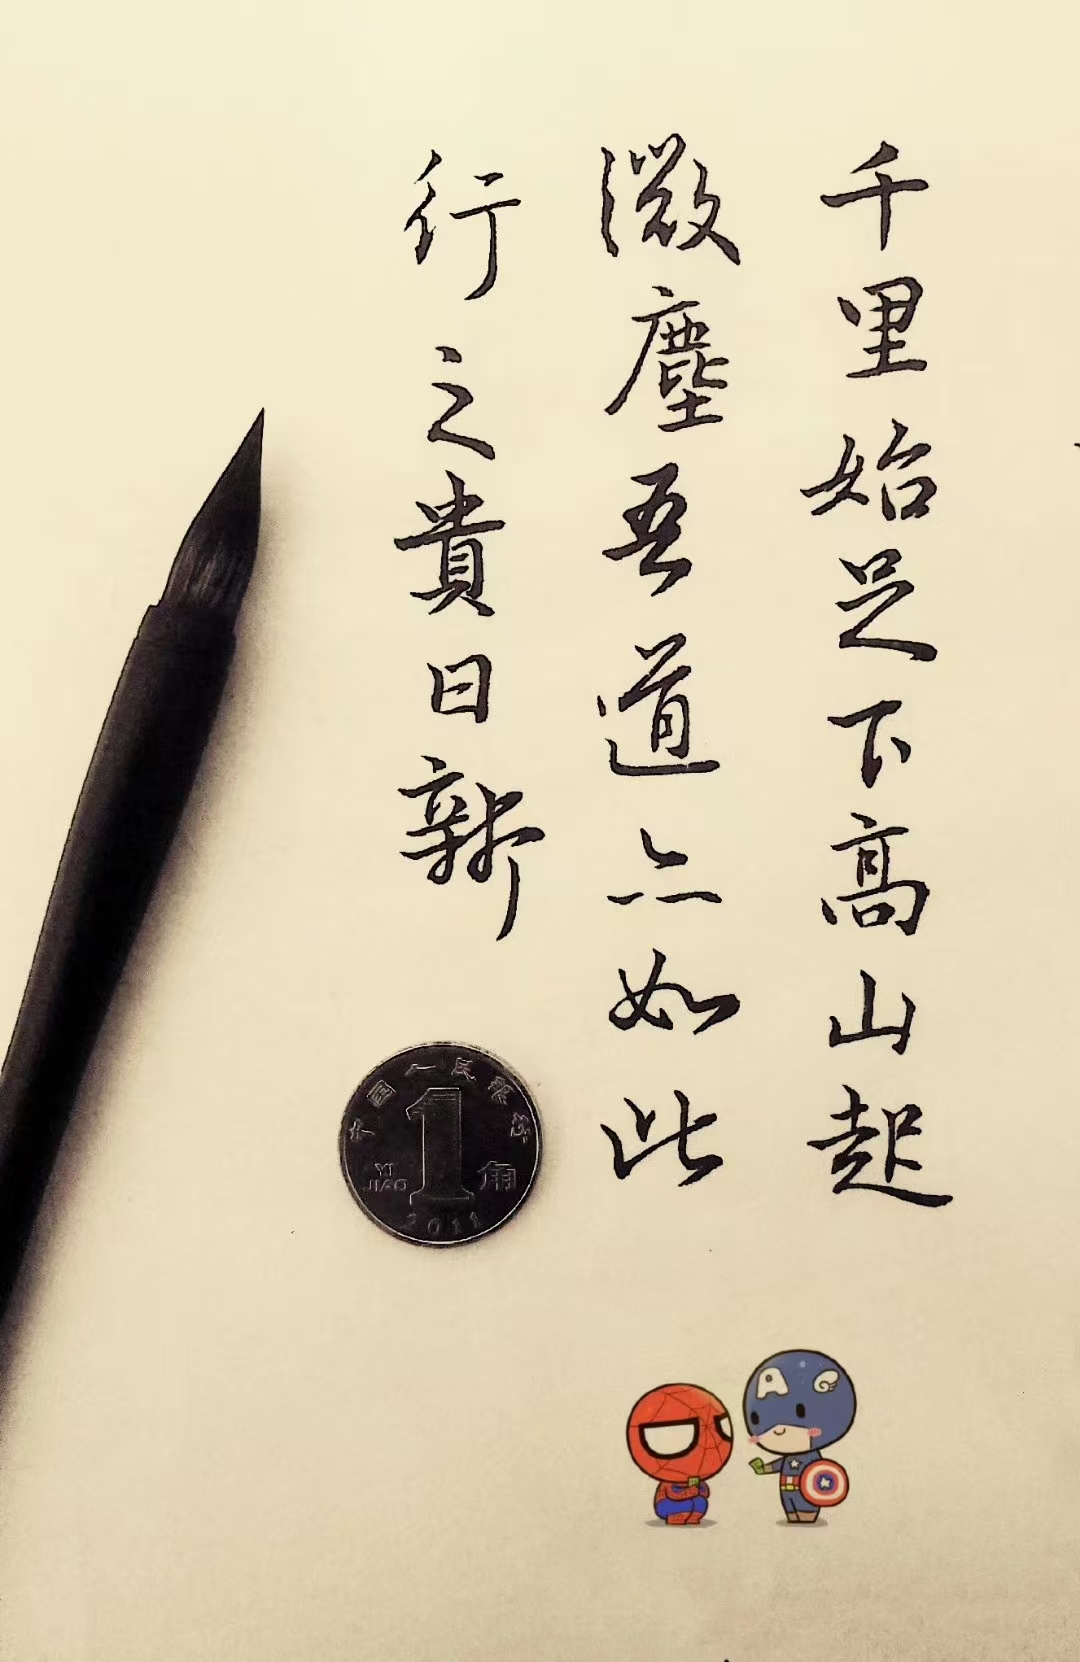 千里始足下高山起
微塵吾道亦如此
行之貴日新
中国人民银行
YI JIAO
1角
2011
A